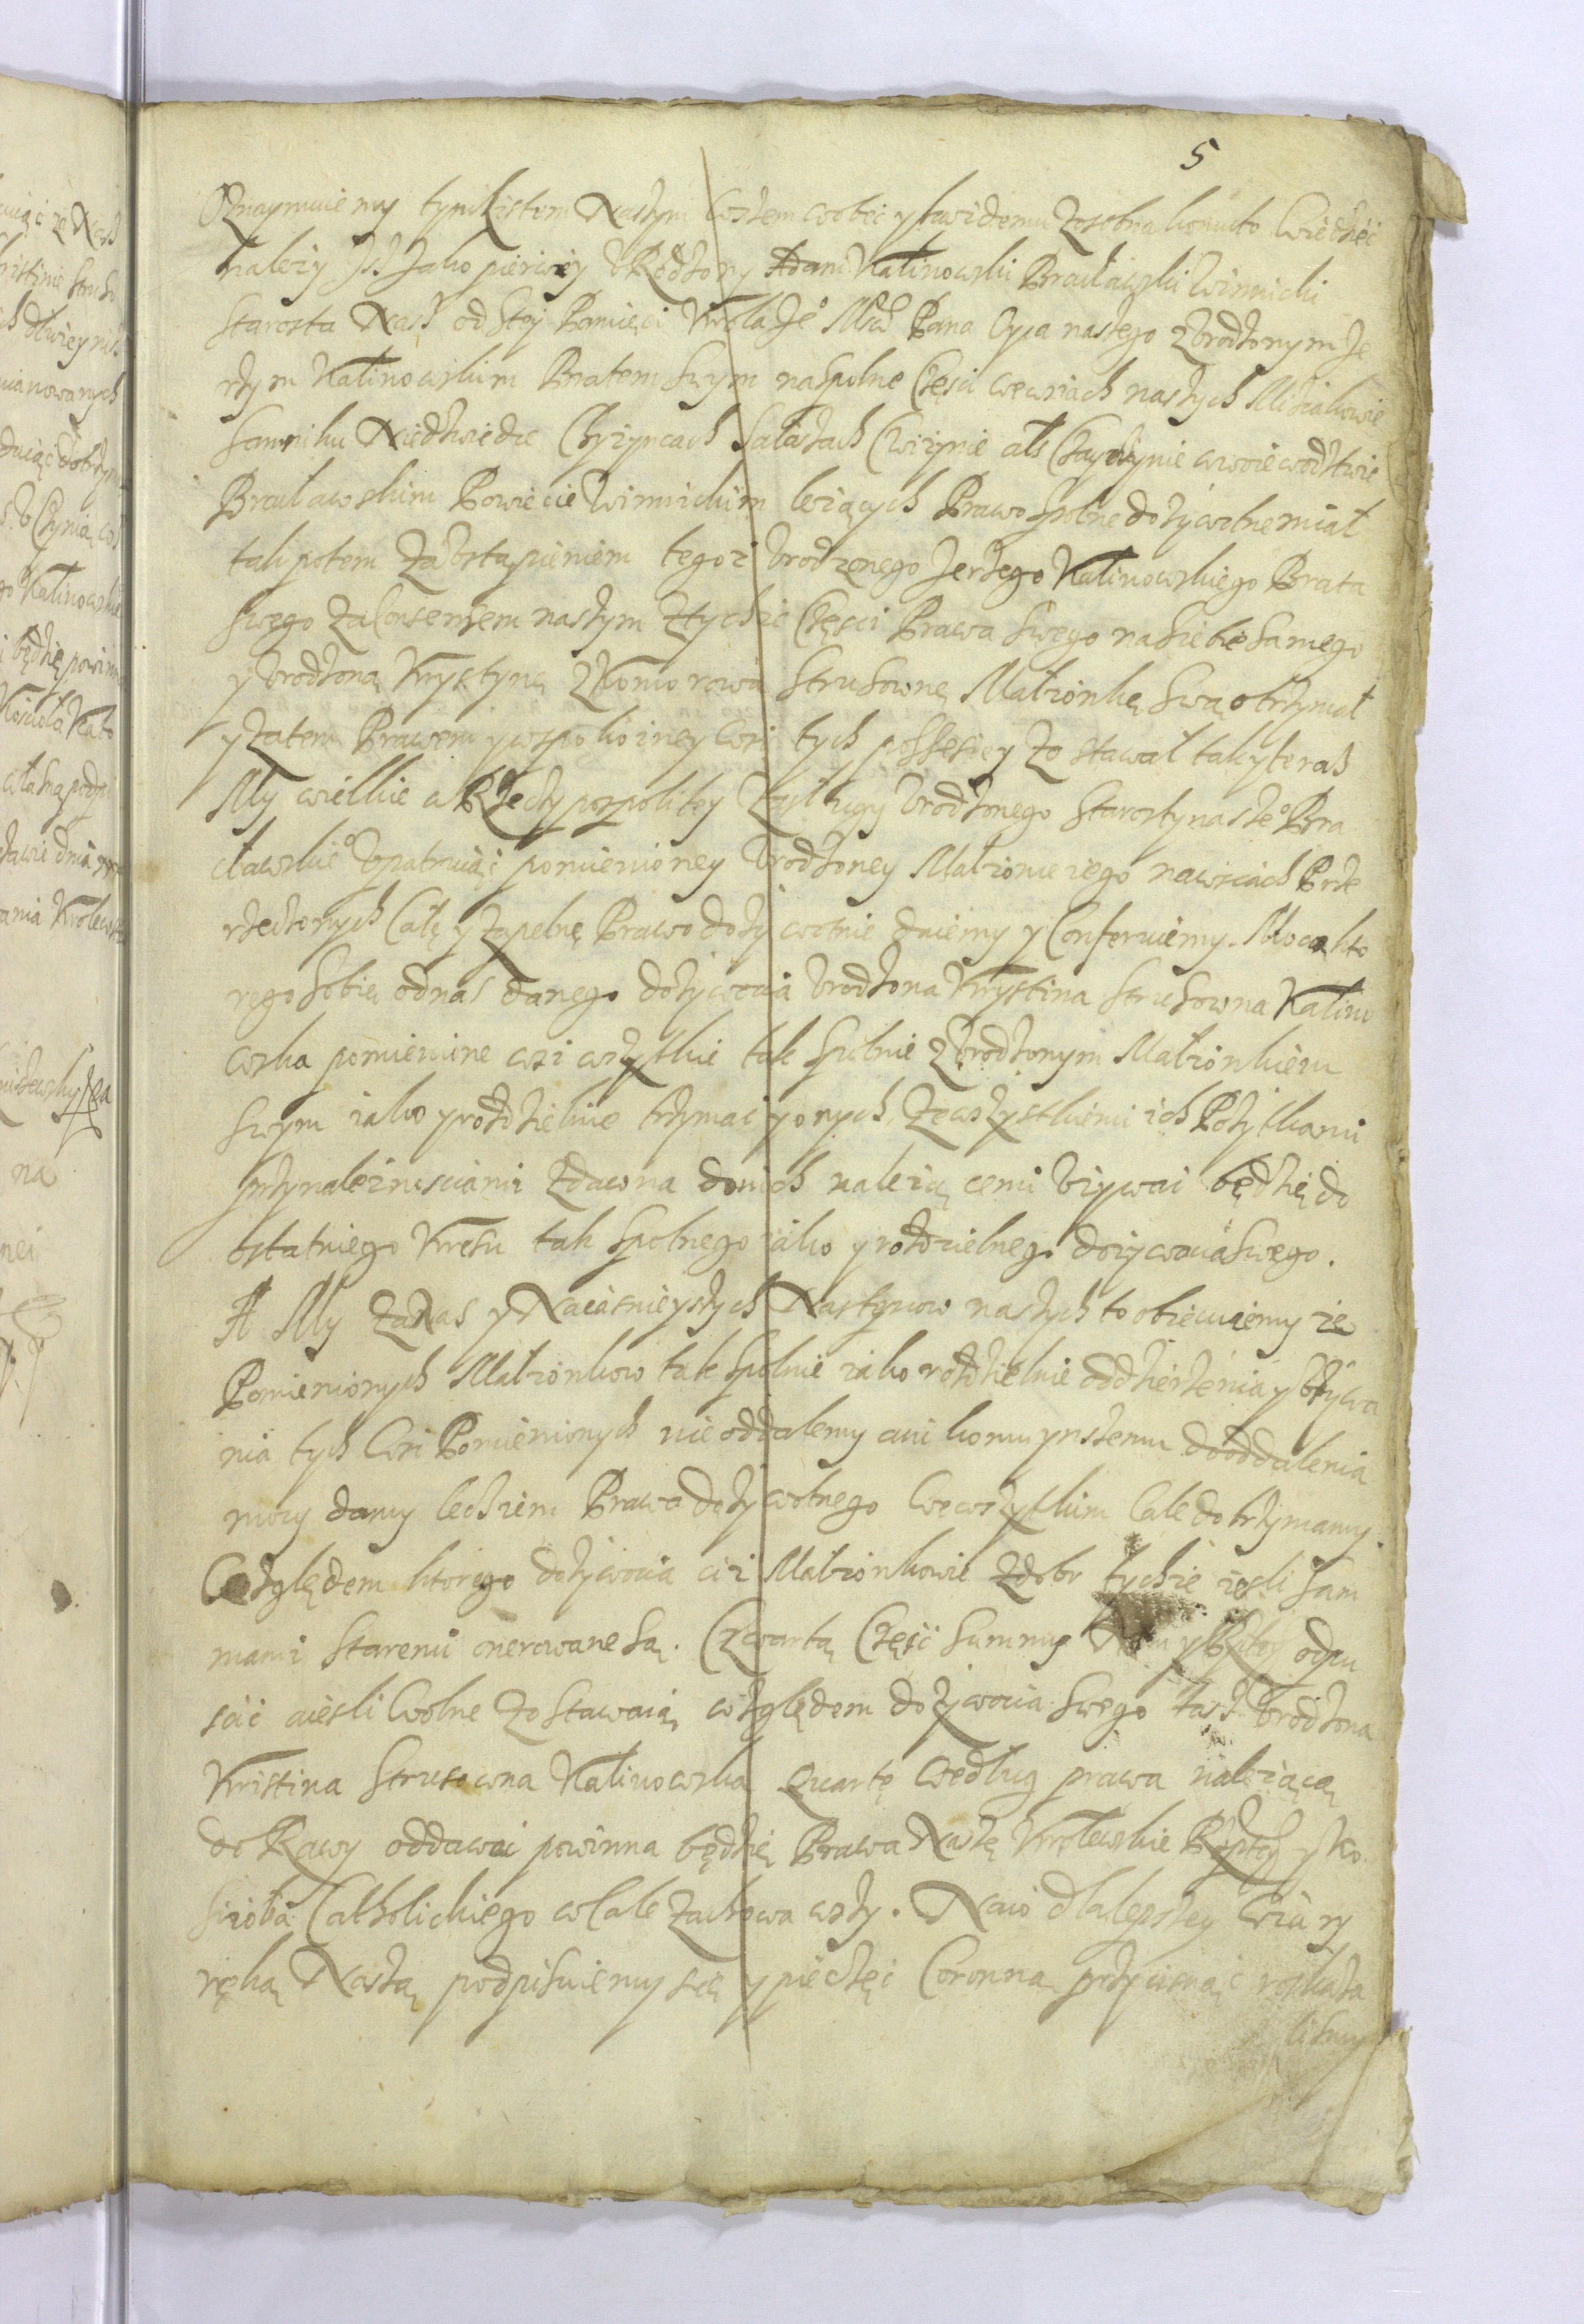 5
Oznaymuiemy tym Listem Naszym wszem wobec y każdemu zosobna komu to wiedzieć
należy Isz Jako pierwey Urodzony Adam Kalinowski Bracławski Winnicki
Starosta Nasz od S̃tej Pamięci Krola Jeo Mści Pana Oyca naszego z Urodzonym Je
rzym Kalinowskim Bratem swym na spolne Częsci we wsiach naszych
Niedzwiedce Chryzyncach Sałaszach als w woiewodztwie
Bracławskim Powiecie Winnickim leżących Prawo spolne dożywotne miał
tak potem za Ustapieniem tegoż Urodzenego Jerzego Kalinowskiego Brata
swego za Consensem naszym z tychże Częsci Prawa swego na siebie samego
y Urodzoną Krystynę z Komorowa Strusownę Małżonkę swą otrzymał
y zatem Prawem y w spokoiney wsi tych possesiey zostawał tak y teraz
My wielkie w Rzeczypospolitey Zasługi Urodzonego Starosty naszeo Bra
cławskieo Upatruiąc pomienioney Urodzoney Małżonce iego na wsiach Prze
rzeczonych Całę y zupełnę Prawo dożywotnie daiemy y Conferuiemy. Mocą kto
rego sobie od nas danego dożywocia Urodzona Krystina Strusowna Kalino
wska pomienione wsi wszytkie tak spolnie z Urodzonym Małżonkiem
swym iako y rozdzielnie trzymać y onych ze wszystkiemi ich Pożytkami
przynależnosciami zdawna do nich należącemi używać będzie do
ostatniego Kresu tak spolnego iako y rozdzielnego dożywocia swego.
A My za Nas y Naiasnieyszych Nastepcow naszych to obiecuiemy że
Pomienionych Małżonkow tak spolnie iako rozdzielnie od dzierżenia y Używa
nia tych Wsi Pomienionych nie oddalemy ani komu ynszemu do oddalenia
mocy damy lecz iem Prawa dożywotnego we wszytkim Cale dotrzymamy
Względem ktorego dożywocia ciż Małżonkowie z dobr tychże iesli Sum
mami Staremi onerowane są. Czwartą Część Summy Nam y Rzptey odpu
scić aiesli Wolne zostawaią względem dożywocia swego tasz Urodzona
Kristina Strusowna Kalinowska Quartę według prawa należącą
do Rawy oddawać powinna będzie Prawa Naszę Krolewskie Rzptey y Ko
sciołá Catholickiego wcale zachowawszy. Na co dla lepszey Wiary
ręką Naszą podpisuiemy się y pieczęć Coronną przycisnąć roskaza
lismy